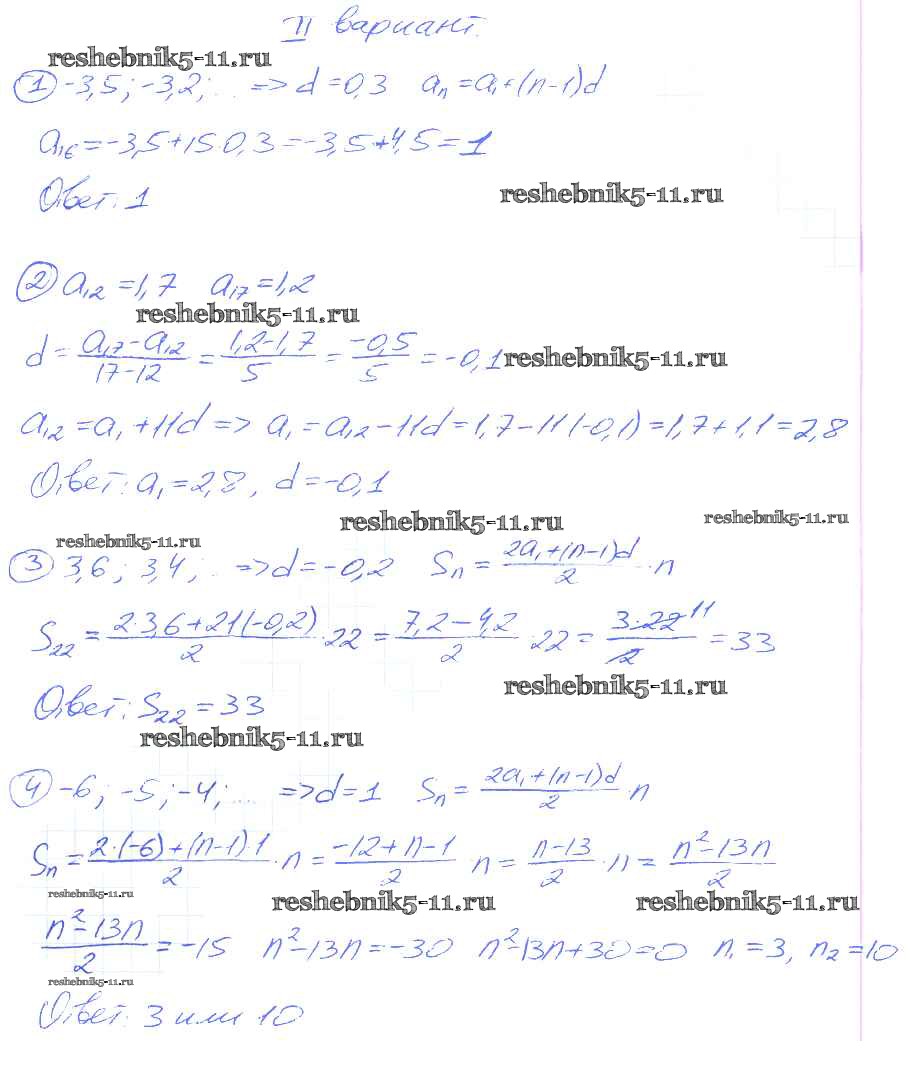 II вариант.
reshebnik5-11.ru
① -3,5; -3,2; ... => d = 0,3 aₙ = a₁+(n-1)d
a₁₆ = -3,5+15·0,3 = -3,5+4,5 = 1
Ответ: 1
reshebnik5-11.ru
② a₁₂ = 1,7 a₁₇ = 1,2
reshebnik5-11.ru
d = (a₁₇-a₁₂)/(17-12) = (1,2-1,7)/5 = (-0,5)/5 = -0,1
reshebnik5-11.ru
a₁₂ = a₁+11d => a₁ = a₁₂-11d = 1,7-11(-0,1) = 1,7+1,1 = 2,8
Ответ: a₁ = 2,8, d = -0,1
reshebnik5-11.ru reshebnik5-11.ru
reshebnik5-11.ru
③ 3,6; 3,4; ... => d = -0,2 Sₙ = (2a₁+(n-1)d)/2 · n
S₂₂ = (2·3,6+21(-0,2))/2 · 22 = (7,2-4,2)/2 · 22 = (3·22 11)/2 = 33
reshebnik5-11.ru
Ответ: S₂₂ = 33
reshebnik5-11.ru
④ -6; -5; -4; .... => d = 1 Sₙ = (2a₁+(n-1)d)/2 · n
Sₙ = (2·(-6)+(n-1)·1)/2 · n = (-12+n-1)/2 · n = (n-13)/2 · n = (n²-13n)/2
reshebnik5-11.ru reshebnik5-11.ru reshebnik5-11.ru
(n²-13n)/2 = -15 n²-13n = -30 n²-13n+30 = 0 n₁ = 3, n₂ = 10
reshebnik5-11.ru
Ответ: 3 или 10